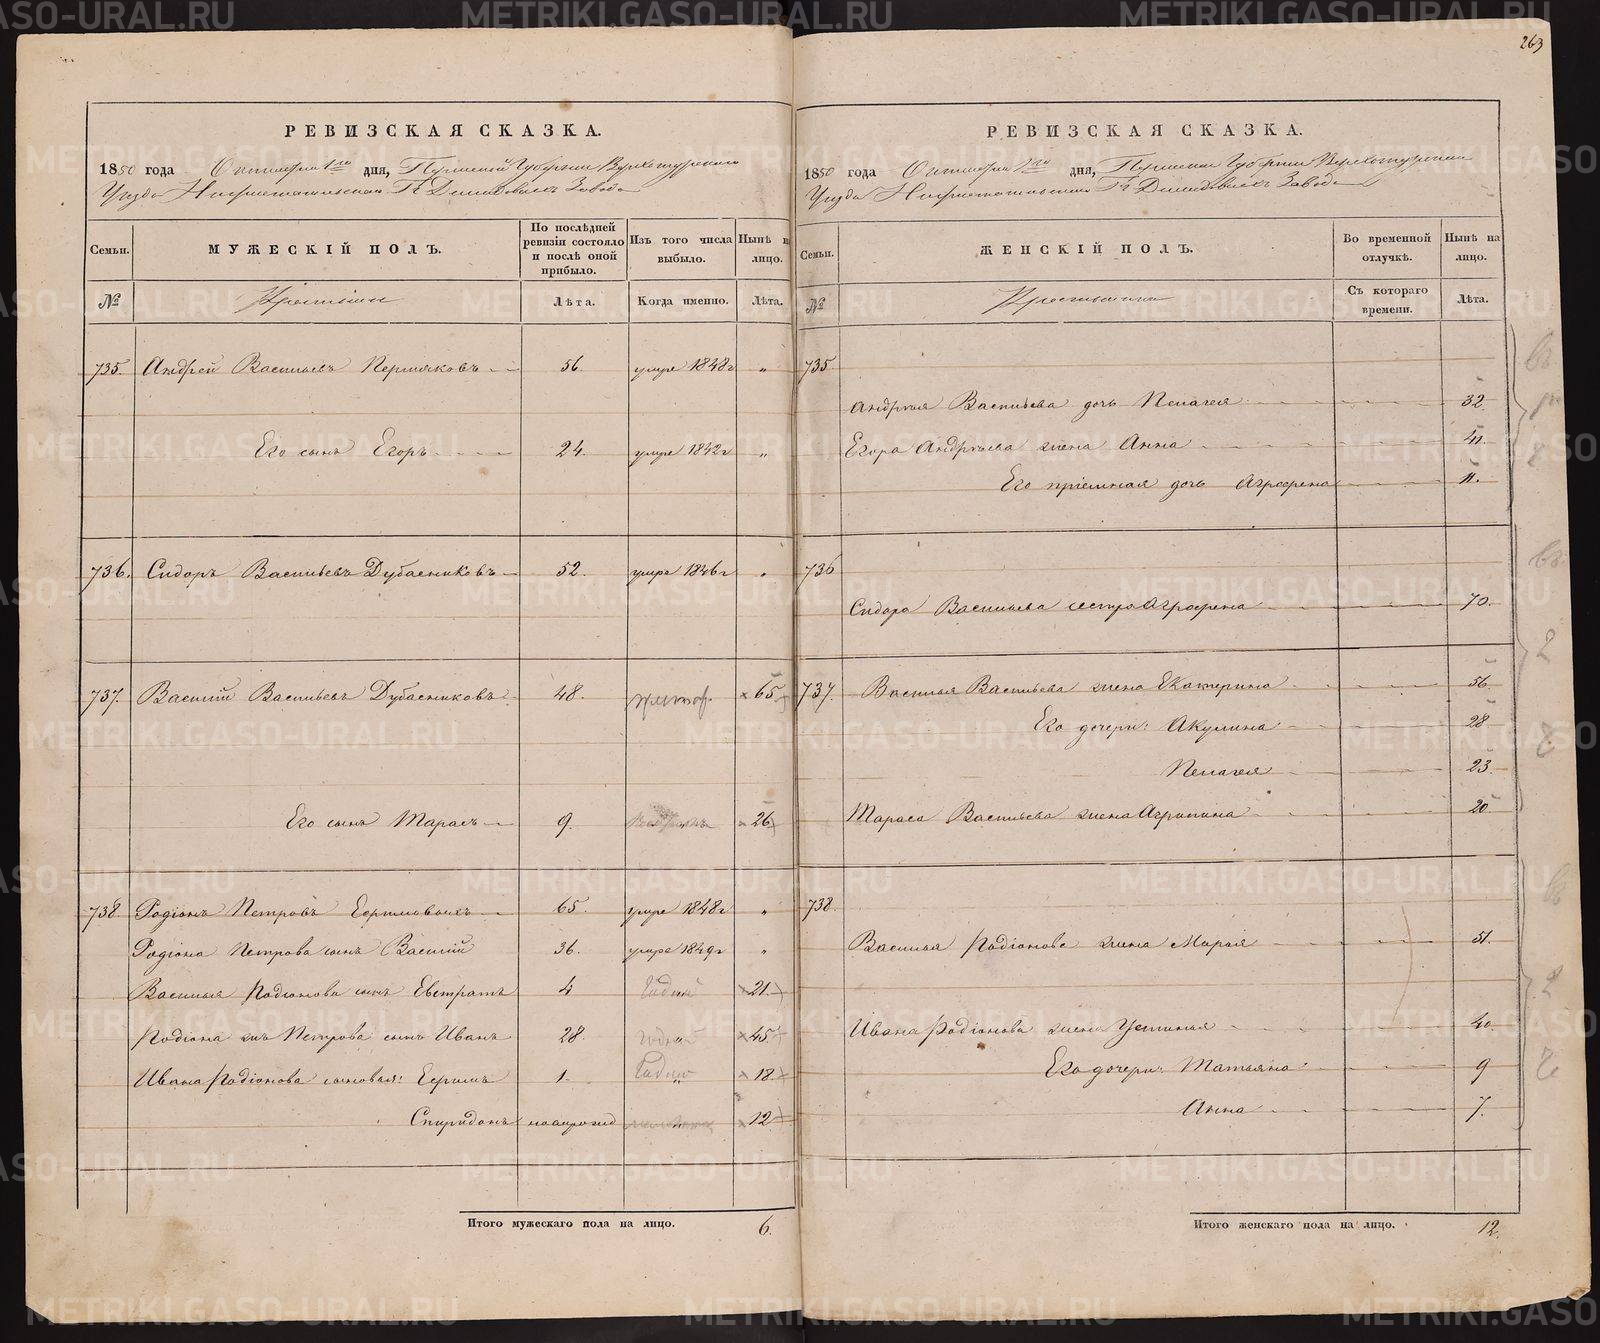 263
РЕВИЗСКАЯ СКАЗКА.
1850 года Октября 1го дня, Пермской Губернии Верхотурскаго
Уезда Нижнетагильскаго Гг. Демидовыхъ Завода
Семьи. МУЖЕСКІЙ ПОЛЪ. По послѣдней ревизіи состояло и послѣ оной прибыло. Изъ того числа выбыло. Нынѣ на лицо.
№ Крестьяне Лѣта. Когда именно. Лѣта.
735. Андрей Васильевъ Пермяковъ 56. умре 1848г "
Его сынъ Егоръ 24. умре 1842г "
736. Сидоръ Васильевъ Дубасниковъ 52. умре 1846г "
737. Василій Васильевъ Дубасниковъ 48. 65
Его сынъ Тарасъ 9. 26
738 Родіонъ Петровъ Ефимовыхъ 65. умре 1848г "
Родіона Петрова сынъ Василій 36. умре 1849г "
Василья Родіонова сынъ Евстратъ 4 Годный 21.
Родіона жъ Петрова сынъ Иванъ 28. годный 45
Ивана Родіонова сыновья: Ефимъ 1. Годный 18.
Спиридонъ новорожд 12
Итого мужескаго пола на лицо. 6.
РЕВИЗСКАЯ СКАЗКА.
1850 года Октября 1го дня, Пермской Губернии Верхотурскаго
Уезда Нижнетагильскаго Гг. Демидовыхъ Завода
Семьи. ЖЕНСКІЙ ПОЛЪ. Во временной отлучкѣ. Нынѣ на лицо.
№ Крестьянки Съ котораго времени. Лѣта.
735
Андрея Васильева дочь Пелагея 32.
Егора Андрѣева жена Анна 41.
Его пріемная дочь Агрофена 11.
736
Сидора Васильева сестра Агрофена 70.
737. Василья Васильева жена Екатерина 56.
Его дочери: Акулина 28
Пелагея 23.
Тараса Васильева жена Агрипина 20
738.
Василья Родіонова жена Марья 51.
Ивана Родіонова жена Устинья 40
Его дочери: Татьяна 9
Анна 7.
Итого женскаго пола на лицо. 12.
METRIKI.GASO-URAL.RU